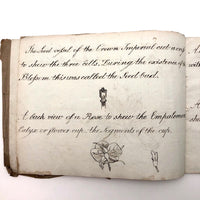 The Seed vessel of the Crown Imperial cut
to shew the three Cells, During the existence of
Blossom this was called the Seed bud.
A back view of a Rose to shew the Empalement
Calyx or flower cup, the Segments of the cup.